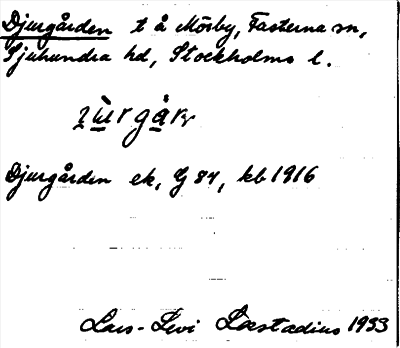 Djurgården t å Mösby, Fasterna sn,
Sjuhundra hd, Stockholms l.
Djurgården ek, G 84, kb 1916
Lars-Levi Læstadius 1953